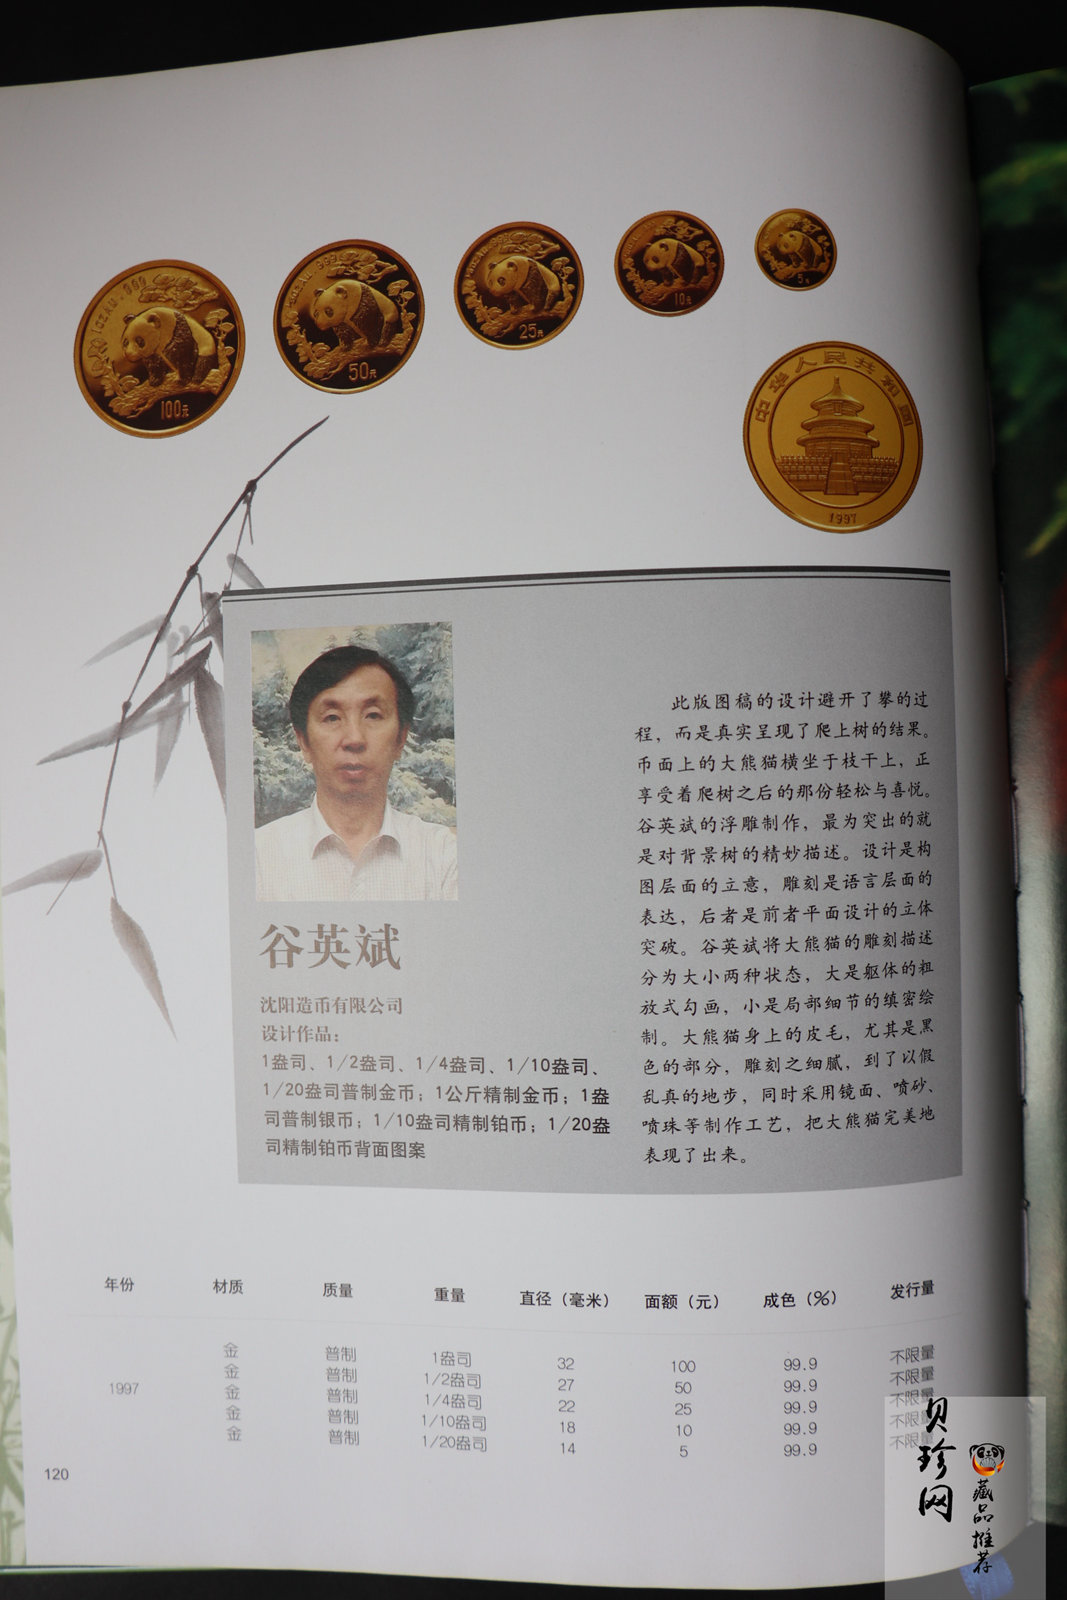 1OZAU .999
100元
50元
25元
10元
5元
中华人民共和国
1997
谷英斌
沈阳造币有限公司
设计作品：
1盎司、1/2盎司、1/4盎司、1/10盎司、
1/20盎司普制金币；1公斤精制金币；1盎
司普制银币；1/10盎司精制铂币；1/20盎
司精制铂币背面图案
此版图稿的设计避开了攀的过
程，而是真实呈现了爬上树的结果。
币面上的大熊猫横坐于枝干上，正
享受着爬树之后的那份轻松与喜悦。
谷英斌的浮雕制作，最为突出的就
是对背景树的精妙描述。设计是构
图层面的立意，雕刻是语言层面的
表达，后者是前者平面设计的立体
突破。谷英斌将大熊猫的雕刻描述
分为大小两种状态，大是躯体的粗
放式勾画，小是局部细节的缜密绘
制。大熊猫身上的皮毛，尤其是黑
色的部分，雕刻之细腻，到了以假
乱真的地步，同时采用镜面、喷砂、
喷珠等制作工艺，把大熊猫完美地
表现了出来。
年份 材质 质量 重量 直径（毫米） 面额（元） 成色（%） 发行量
金 普制 1盎司 32 100 99.9 不限量
金 普制 1/2盎司 27 50 99.9 不限量
1997 金 普制 1/4盎司 22 25 99.9 不限量
金 普制 1/10盎司 18 10 99.9 不限量
金 普制 1/20盎司 14 5 99.9 不限量
120
贝珍网
藏品推荐